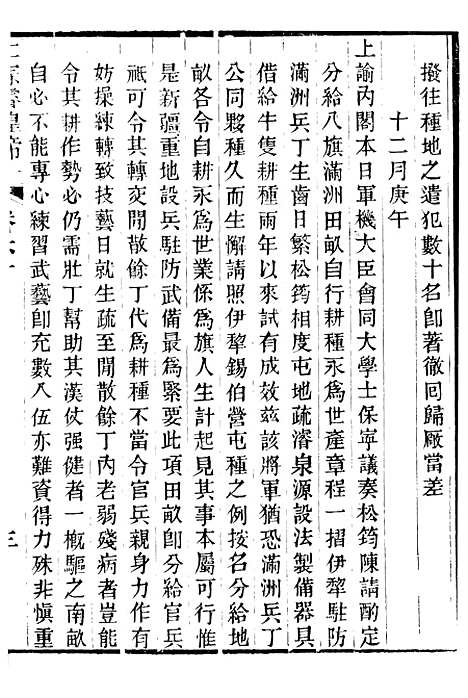 撥往種地之遣犯數十名卽著徹回歸厰當差
十二月庚午
上諭內閣本日軍機大臣會同大學士保寧議奏松筠陳請酌定
分給八旗滿洲田畝自行耕種永爲世產章程一摺伊犂駐防
滿洲兵丁生齒日繁松筠相度屯地疏濬泉源設法製備器具
借給牛隻耕種兩年以來試有成效茲該將軍猶恐滿洲兵丁
公同夥種久而生懈請照伊犂錫伯營屯種之例按名分給地
畝各令自耕永爲世業係爲旗人生計起見其事本屬可行惟
是新疆重地設兵駐防武備最爲緊要此項田畝卽分給官兵
祇可令其轉交閒散餘丁代爲耕種不當令官兵親身力作有
妨操練轉致技藝日就生疏至閒散餘丁內老弱殘病者豈能
令其耕作勢必仍需壯丁幫助其漢仗强健者一槪驅之南畝
自必不能專心練習武藝卽充數入伍亦難資得力殊非愼重
三